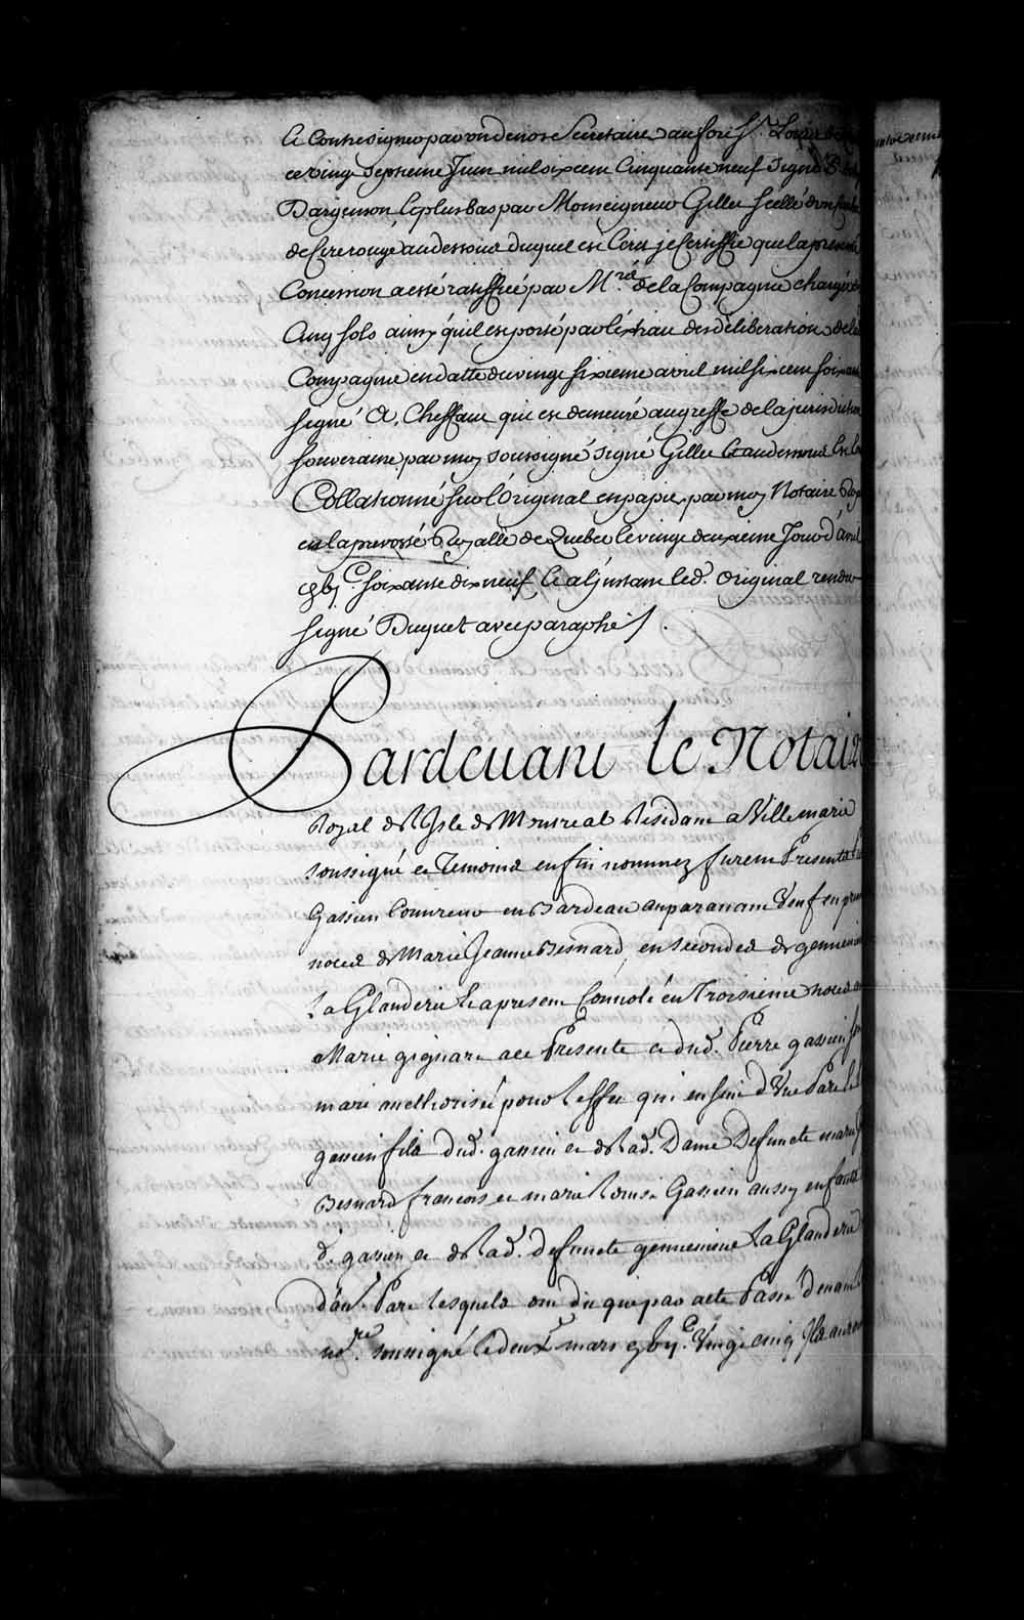 et Contresigner par un de nos Secretaire au fort St. Louis
ce vingt Septieme Juin mil six cent Cinquante neuf Signé
Dargenson, et plus bas par Monseigneur Gillet scellé d'un
de Cire rouge au dessous duquel est Ecrit je Certiffie que la presente
Concession a esté ratiffiée par Mrs. de la Compagnie chargée
Cinq sols ainsy qu'il est porté par lextrait des deliberations de la
Compagnie en datte du vingt sixieme avril mil six cent soixante
signé A. Cheffaut qui est demeuré au greffe de la jurisdiction
souveraine par moy soussigné signé Gillet Et au dessous Est
Collationné sur l'Original en papier par moy Notaire Roy
en la prevosté Royalle de Quebec le vingt deuxieme Jour d'avril
gbjC soixante dix neuf Et a l'jnstant led. Original rendu
signé Duquet avec paraphe /.
Pardeuant le Notaire
Royal de L'Isle de Montreal Residant a Villemarie
soussigné et Temoins en fin nommez furent Presents
Gassien Couvreur en Bardeau auparavant Veuf en
noces de Marie Jeanne Besnard, en secondes de genevieve
La Glanderie et apresent Convolé en Troisieme noces
Marie gignare ace Presente et dud. Pierre gassien
mari authorisée pour l'effet qui ensuit d'Une Part
gassien fils dud. gassien et de Lad. Dame Defuncte marie
Besnard francois et marie Louise Gassien aussy enfants
d. gassien et de Lad. defuncte genevieve La Glanderie
d'aut. Part lesquels ont dit que par acte Passé devant
no.re soussigné le deux mars gbijC Vingt cinq Ils auroient